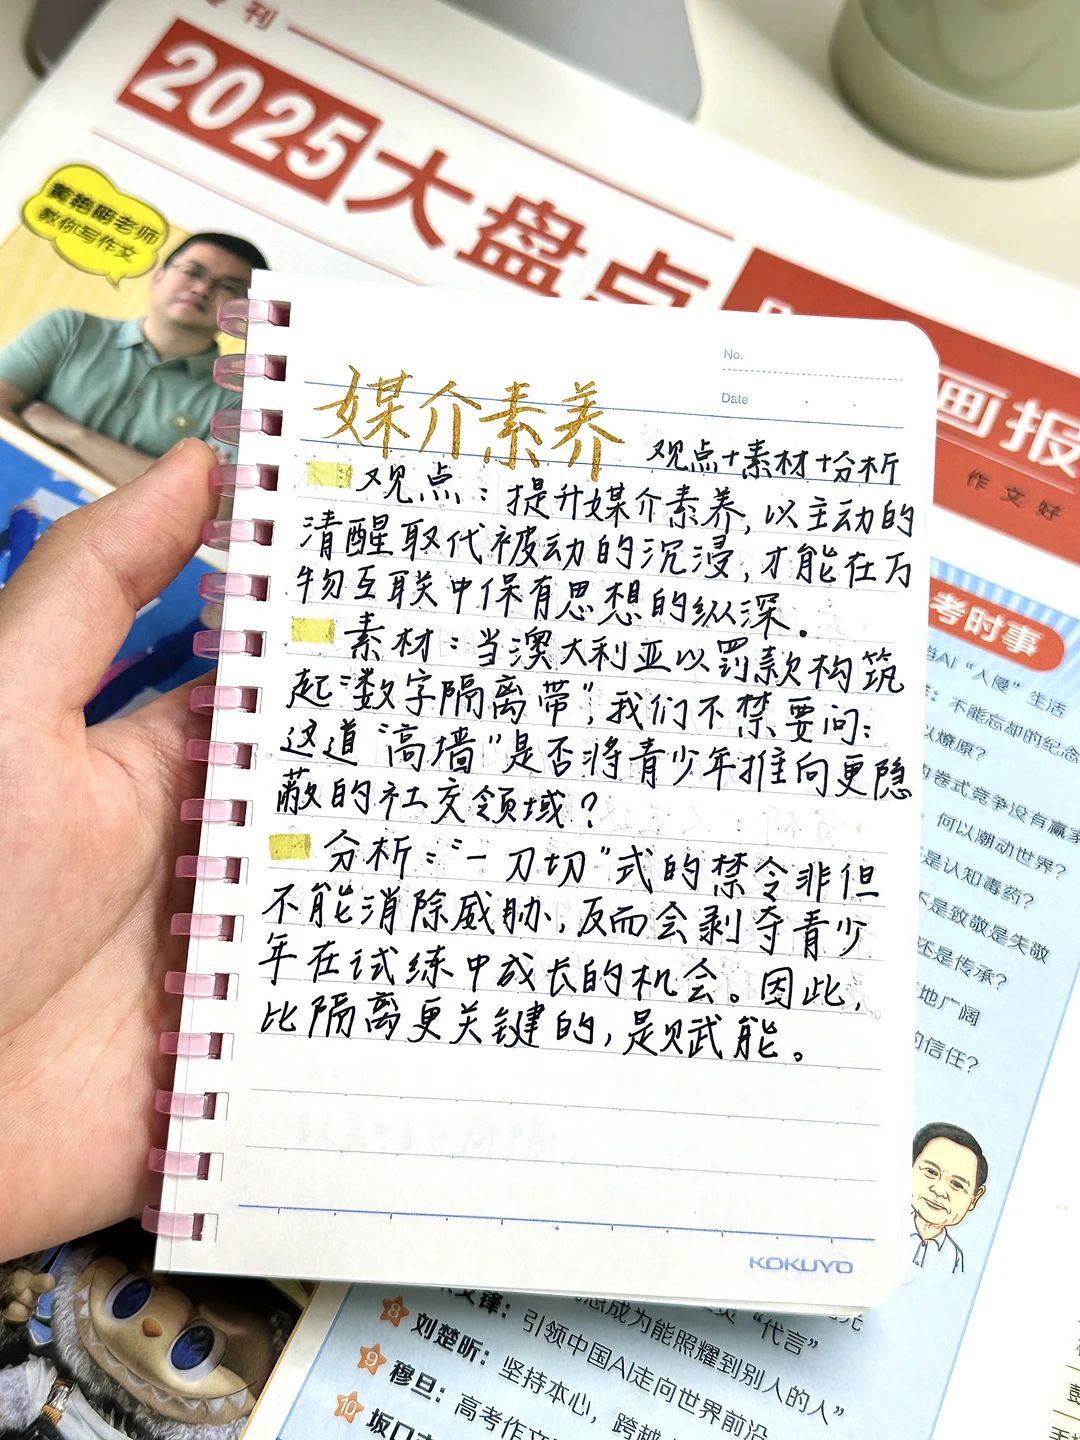 刊
2025大盘点
黄艳明老师
教你写作文
画报
作文好
No.
Date
媒介素养
观点+素材+分析
观点：提升媒介素养,以主动的
清醒取代被动的沉浸,才能在万
物互联中保有思想的纵深.
素材：当澳大利亚以罚款构筑
起“数字隔离带”,我们不禁要问:
这道“高墙”是否将青少年推向更隐
蔽的社交领域？
分析：“一刀切”式的禁令非但
不能消除威胁,反而会剥夺青少
年在试炼中成长的机会。因此,
比隔离更关键的,是赋能。
KOKUYO
考时事
当AI“入侵”生活
不能忘却的纪念
以燎原?
卷式竞争没有赢家
何以潮动世界?
是认知毒药?
不是致敬是失敬
还是传承?
地广阔
的信任?
“代言”
8
锋：
成为能照耀到别人的人”
9
刘楚昕：
引领中国AI走向世界前沿
10
穆旦：
坚持本心，跨越
坂口
高考作文